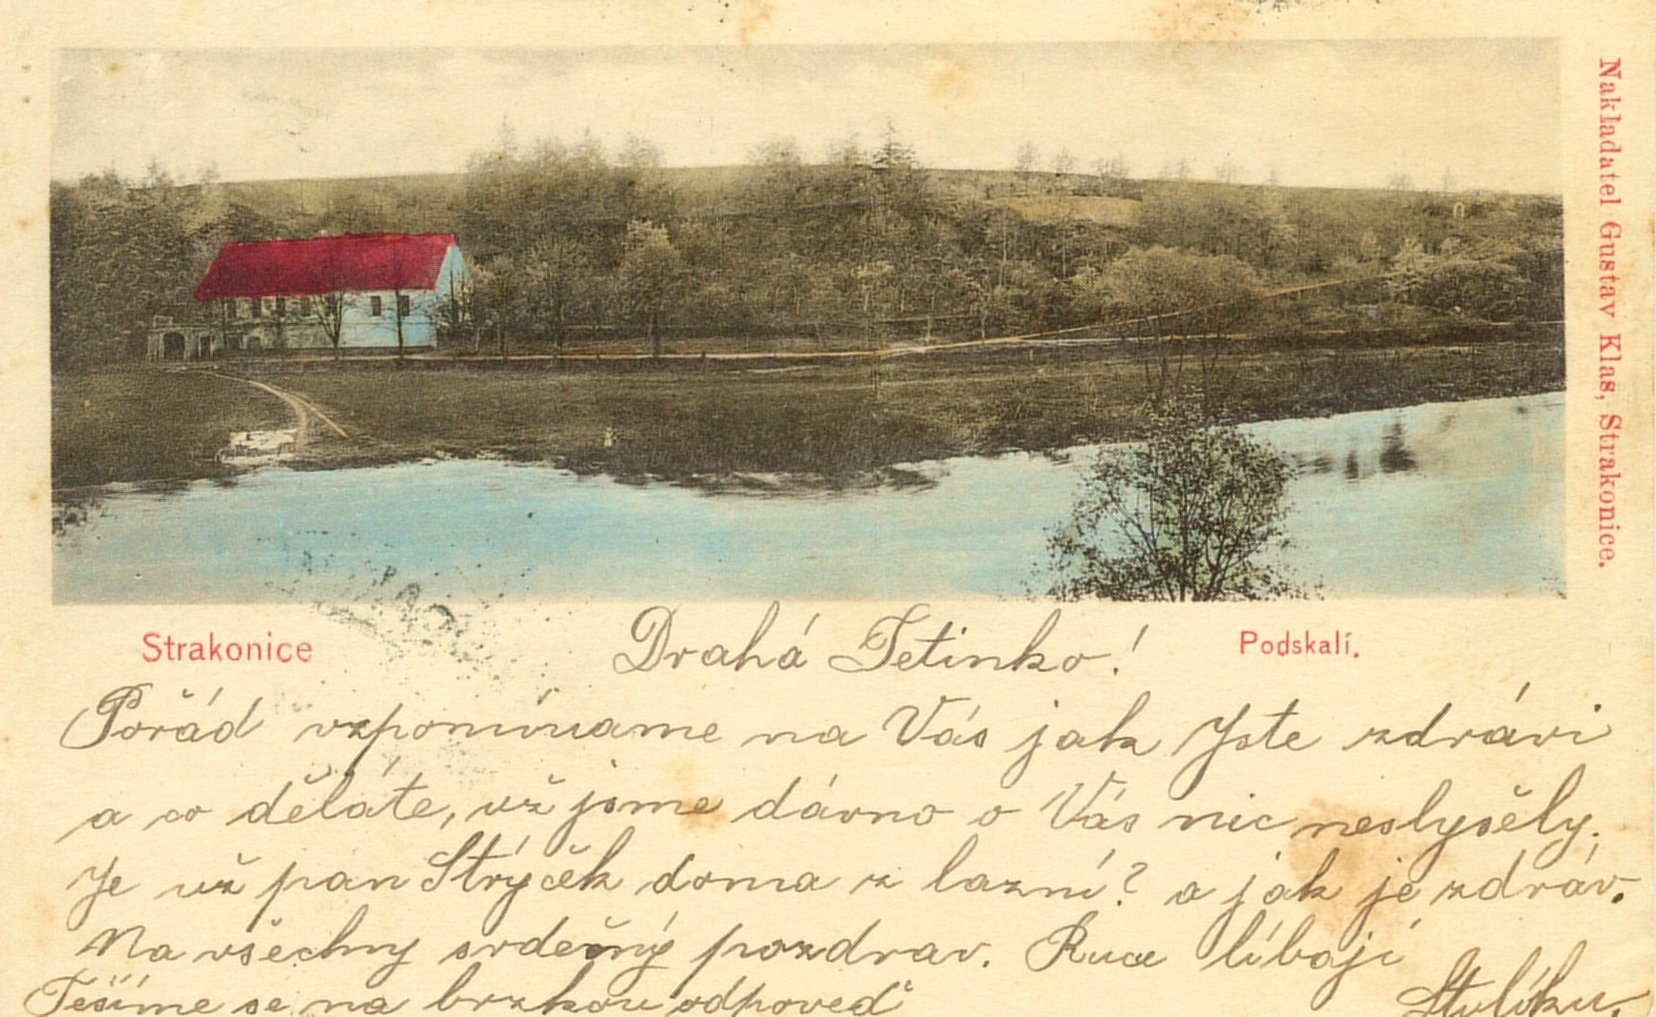 Nakladatel Gustav Klas, Strakonice.
Strakonice
Drahá Tetinko!
Podskalí.
Pořád vzpomínáme na Vás jak Jste zdrávi
a co děláte, už jsme dávno o Vás nic neslyšěly.
Je už pan Strýček doma z lazní? a jak je zdráv.
Na všechny srdečný pozdrav. Ruce líbají
Tešíme se na brzkou odpoveď